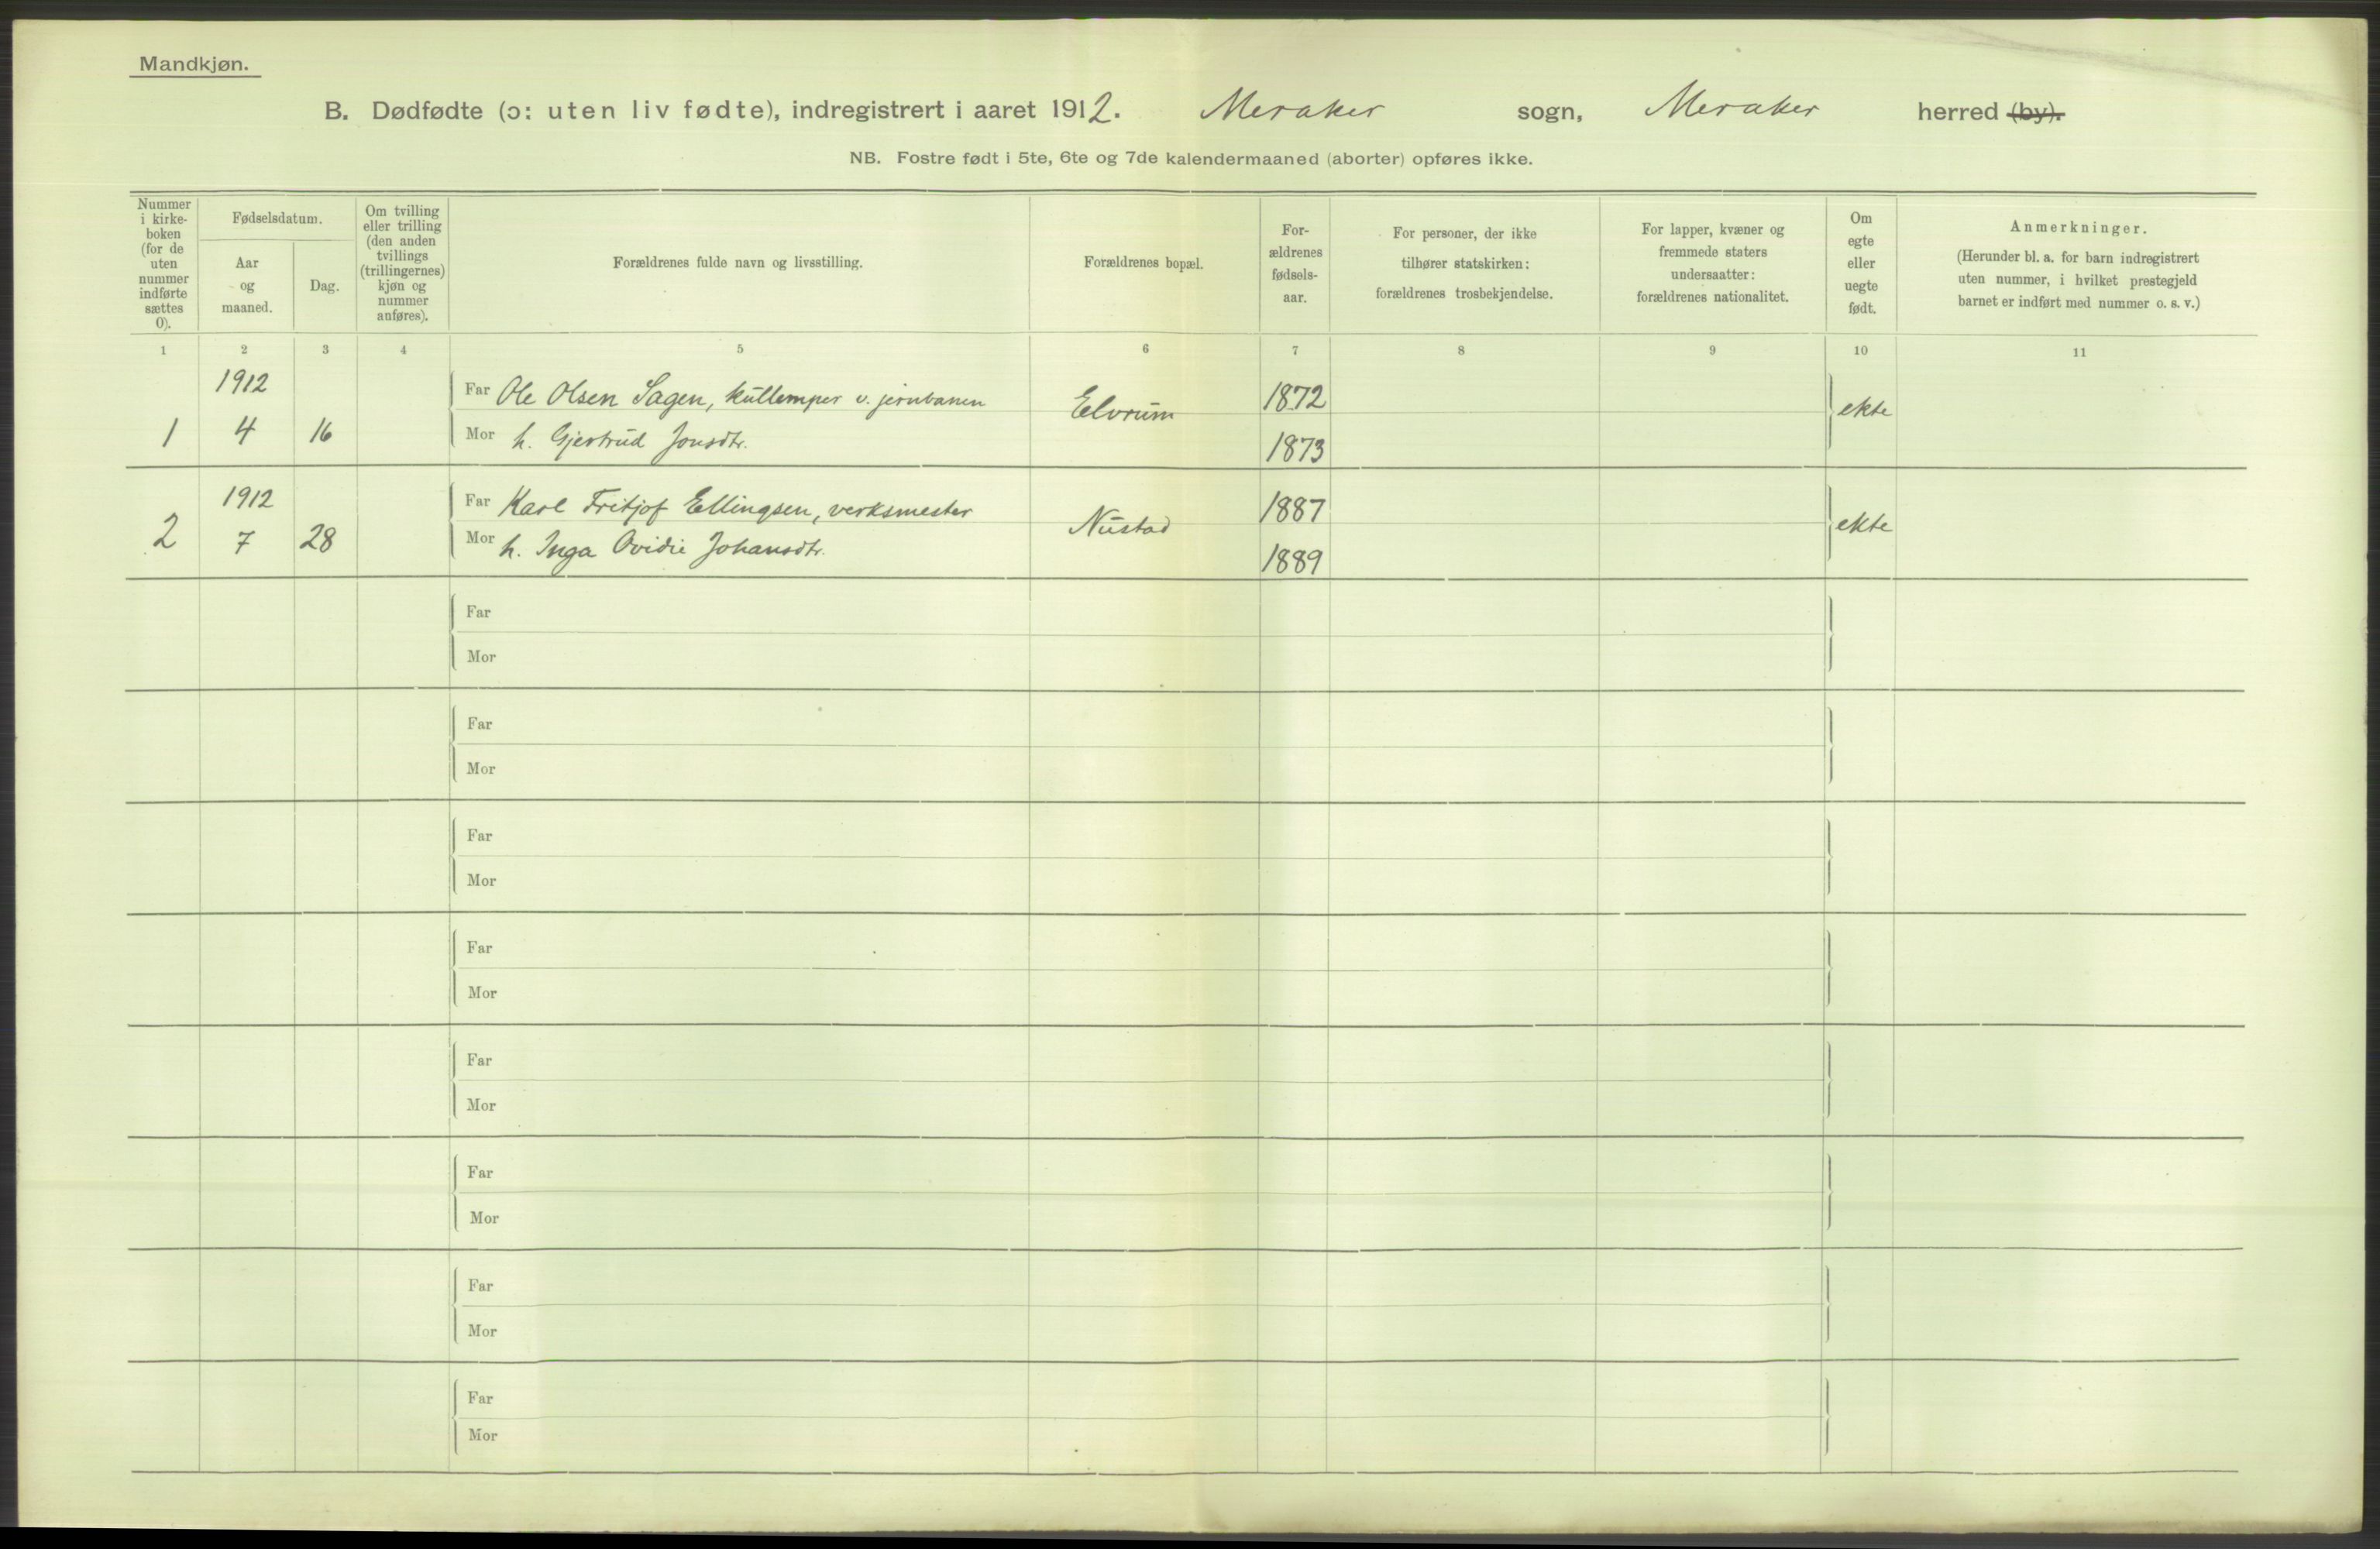 Mandkjøn.
B. Dødfødte (ɔ: uten liv fødte), indregistrert i aaret 1912. Meraker sogn, Meraker herred (by).
NB. Fostre født i 5te, 6te og 7de kalendermaaned (aborter) opføres ikke.
Nummer
i kirke-
boken
(for de
uten
nummer
indførte
sættes
0).
Fødselsdatum.
Aar
og
maaned.
Dag.
Om tvilling
eller trilling
(den anden
tvillings
(trillingernes)
kjøn og
nummer
anføres).
Forældrenes fulde navn og livsstilling.
Forældrenes bopæl.
For-
ældrenes
fødsels-
aar.
For personer, der ikke
tilhører statskirken:
forældrenes trosbekjendelse.
For lapper, kvæner og
fremmede staters
undersaatter:
forældrenes nationalitet.
Om
egte
eller
uegte
født.
Anmerkninger.
(Herunder bl. a. for barn indregistrert
uten nummer, i hvilket prestegjeld
barnet er indført med nummer o. s. v.)
1 2 3 4 5 6 7 8 9 10 11
1912
1 4 16
Far Ole Olsen Sagen, kullemper v. jernbanen
Mor h. Gjertrud Jonsdtr.
Elvrum
1872
1873
ekte
1912
2 7 28
Far Karl Fritjof Ellingsen, verksmester
Mor h. Inga Ovidie Johansdtr.
Nustad
1887
1889
ekte
Far
Mor
Far
Mor
Far
Mor
Far
Mor
Far
Mor
Far
Mor
Far
Mor
Far
Mor